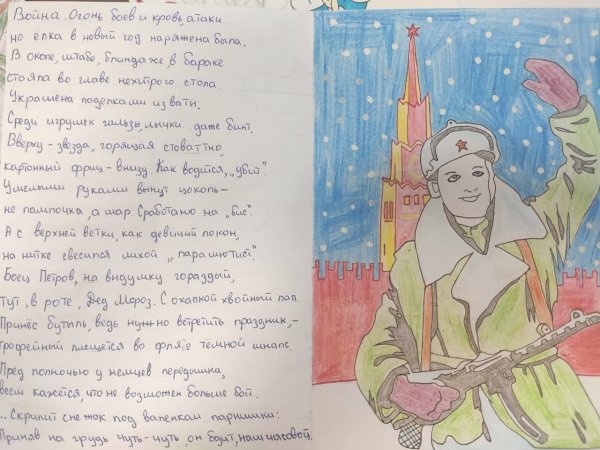 Война. Огонь боев и кровь атаки...
но ёлка в новый год наряжена была.
В окопе, штабе, блиндаже в бараке
стояла во главе нехитрого стола.
Украшена поделками из ваты.
Среди игрушек гильзы, лычки... даже бинт.
Вверху - звезда, горящая стоваттно,
картонный фриц - внизу. Как водится, „убит".
Умелыми руками вынут цоколь -
не лампочка, а шар. Сработано на „бис".
А с верхней ветки, как девичий локон,
на нитке свесился лихой „парашютист."
Боец Петров, на выдумку гораздый,
тут, в роте, Дед Мороз. С охапкой хвойных лап.
Принёс бутыль, ведь нужно встретить праздник, -
трофейный плещется во фляге тёмной шнапс.
Пред полночью у немцев передышка,
всем кажется, что не возможен больше бой.
... Скрипит снежок под валенком парнишки:
Приняв на грудь чуть-чуть, он бдит, наш часовой.